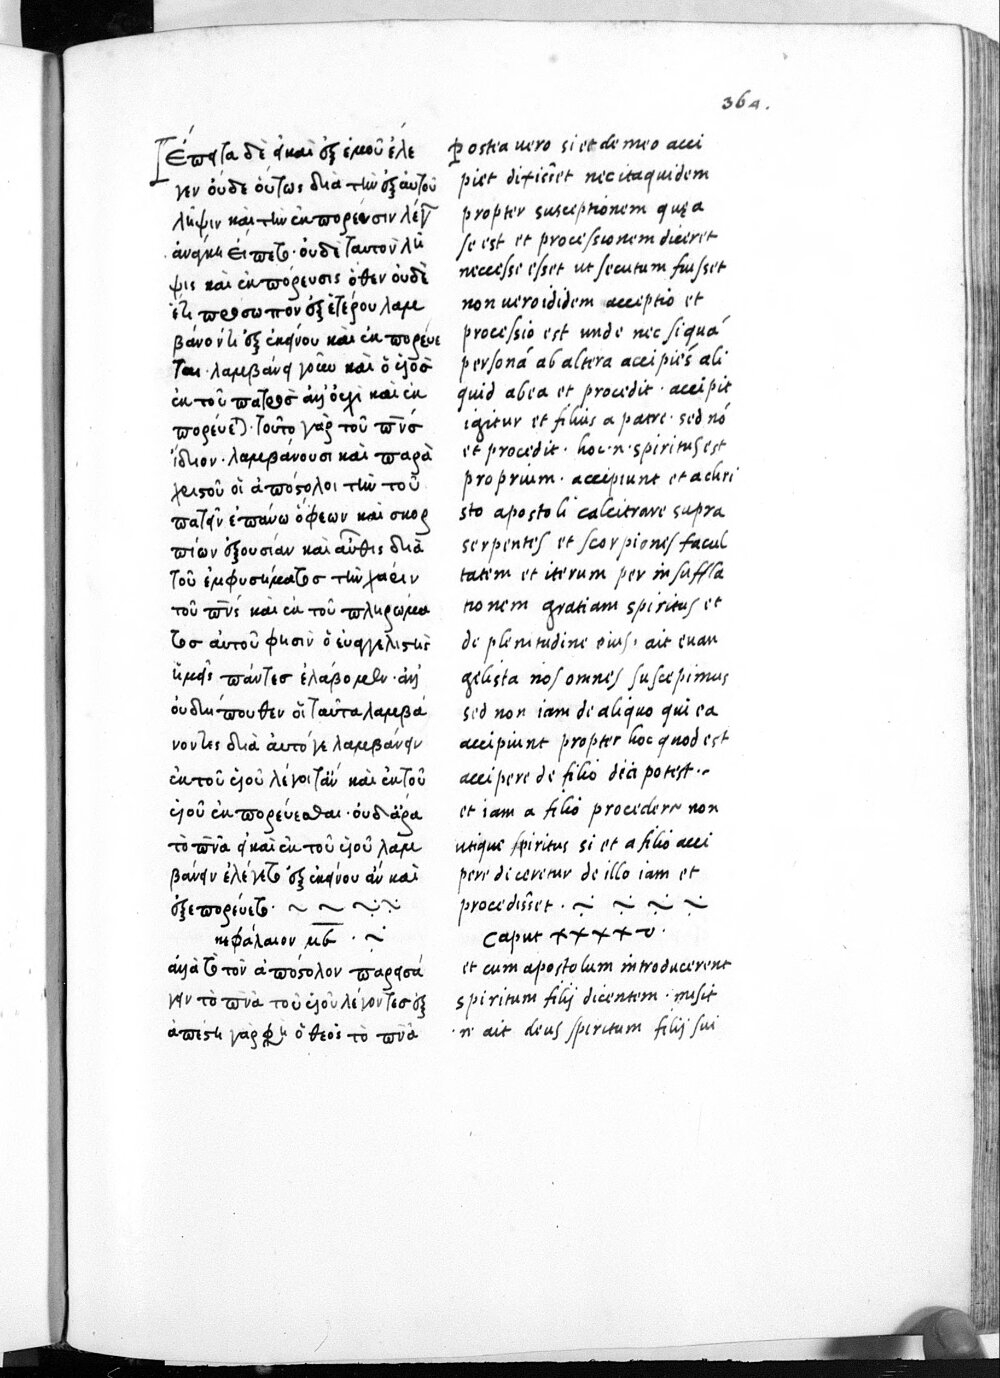 364.
ἔπειτα δὲ εἰ καὶ ἐξ ἐμοῦ ἔλε
γεν οὐδε οὕτως διὰ τὴν ἐξ αὐτοῦ
λῆψιν καὶ τὴν ἐκπορέυσιν λέγειν
ἀνάγκη ἐίπετο· οὐδὲ ταυτὸν λῆ
ψις καὶ ἐκπόρευσις ὅθεν ὀυδὲ
ἔτι πρόσωπον ἐξ ἑτέρου λαμ
βάνον τι ἐξ ἐκείνου καὶ ἐκπορέυε
ται· λαμβάνει γοῦν καὶ ὁ υἱὸσ
ἐκ τοῦ πατρὸσ ἀλλ' οὐχὶ καὶ ἐκ
πορέυεται· τοῦτο γὰρ τοῦ πνσ
ἴδιον· λαμβάνουσι καὶ παρὰ
χριστοῦ οἱ ἀπόστολοι τὴν τοῦ
πατεῖν ἐπάνω ὄφεων καὶ σκορ
πίων ἐξουσίαν καὶ αὖθις διὰ
τοῦ ἐμφυσήματοσ τὴν χάριν
τοῦ πνς καὶ ἐκ τοῦ πληρώμα
τοσ αὐτοῦ φησὶν ὁ ἐυαγγελιστὴς
ἡμεῖς πάντεσ ἐλάβομεν· ἀλλ'
ὀυ δήπουθεν οἱ ταῦτα λαμβά
νοντες διὰ αὐτό γε λαμβάνειν
ἐκ τοῦ υἱοῦ λέγοιτ ἂν καὶ ἐκ τοῦ
υἱοῦ ἐκπορέυεσθαι· ὀυδ ἄρα
τὸ πνα εἰ καὶ ἐκ τοῦ υἱοῦ λαμ
βάνειν ἐλέγετο ἐξ ἐκείνου ἂν καὶ
ἐξεπορέυετο·
κεφάλαιον μβ·
ἀλλὰ τὸν ἀπόστολον παρεισά
γειν τὸ πνὰ τοῦ υἱοῦ λέγοντεσ ἐξ
απέστη γὰρ φη ὁ θεός τὸ πνὰ
postea uero si et de meo acci
piet dixisset nec ita quidem
propter susceptionem quę a
se est et processionem diceret
necesse esset ut secutum fuisset
non uero ididem acceptio et
processio est unde nec si quá
personá ab altera accipiés ali
quid ab ea et procedit· accipit
igitur et filius a patre· sed nó
et procedit· hoc ·n· spiritus est
proprium· accipiunt et a chri
sto apostoli calcitrare supra
serpentes et scorpiones facul
tatém et iterum per insuffla
tionem gratiam spiritus et
de plenitudine eius, ait euan
gelista nos omnes suscepimus
sed non iam de aliquo qui ea
accipiunt propter hoc quod est
accipere de filio dici potest·
et iam a filio procedere non
utique spiritus si et a filio acci
pere diceretur de illo iam et
procedisset·
Caput xxxxv·
et cum apostolum introducerent
spiritum filij dicentem· misit
·n· ait deus spiritum filij sui